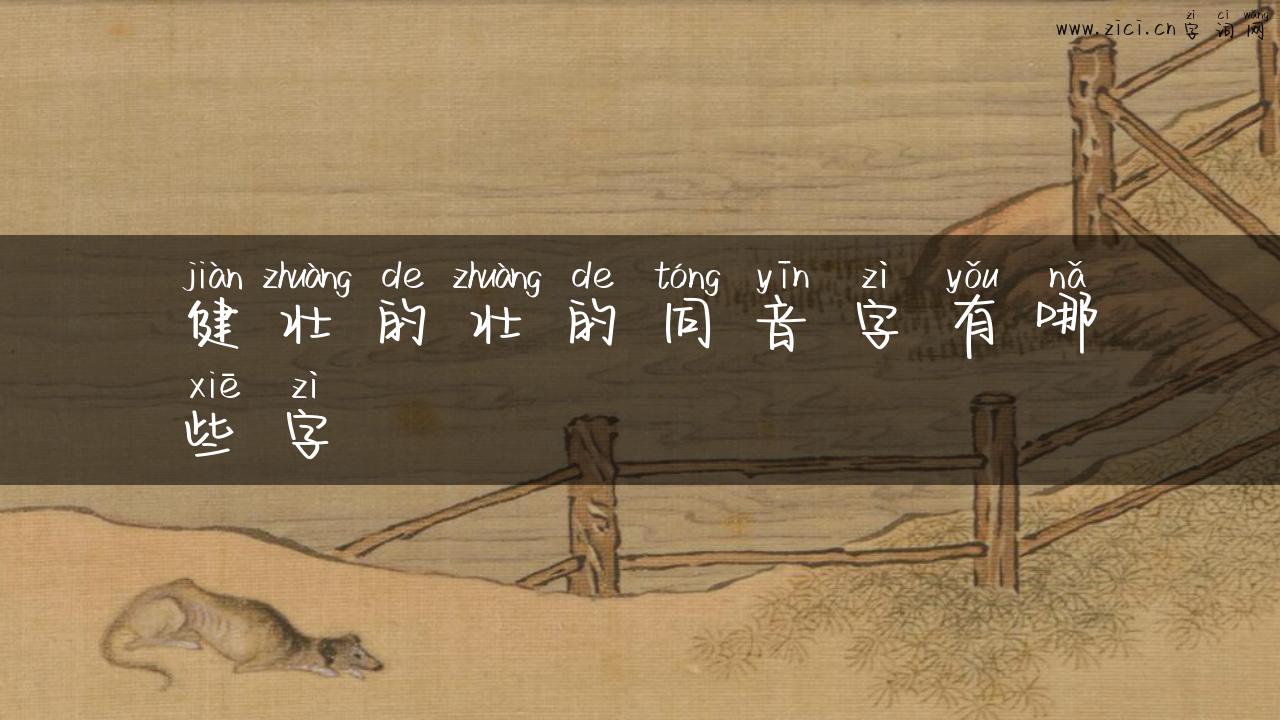 zì cí wǎng
www.zici.cn 字词网
jiàn zhuàng de zhuàng de tóng yīn zì yǒu nǎ
健壮的壮的同音字有哪
xiē zì
些字